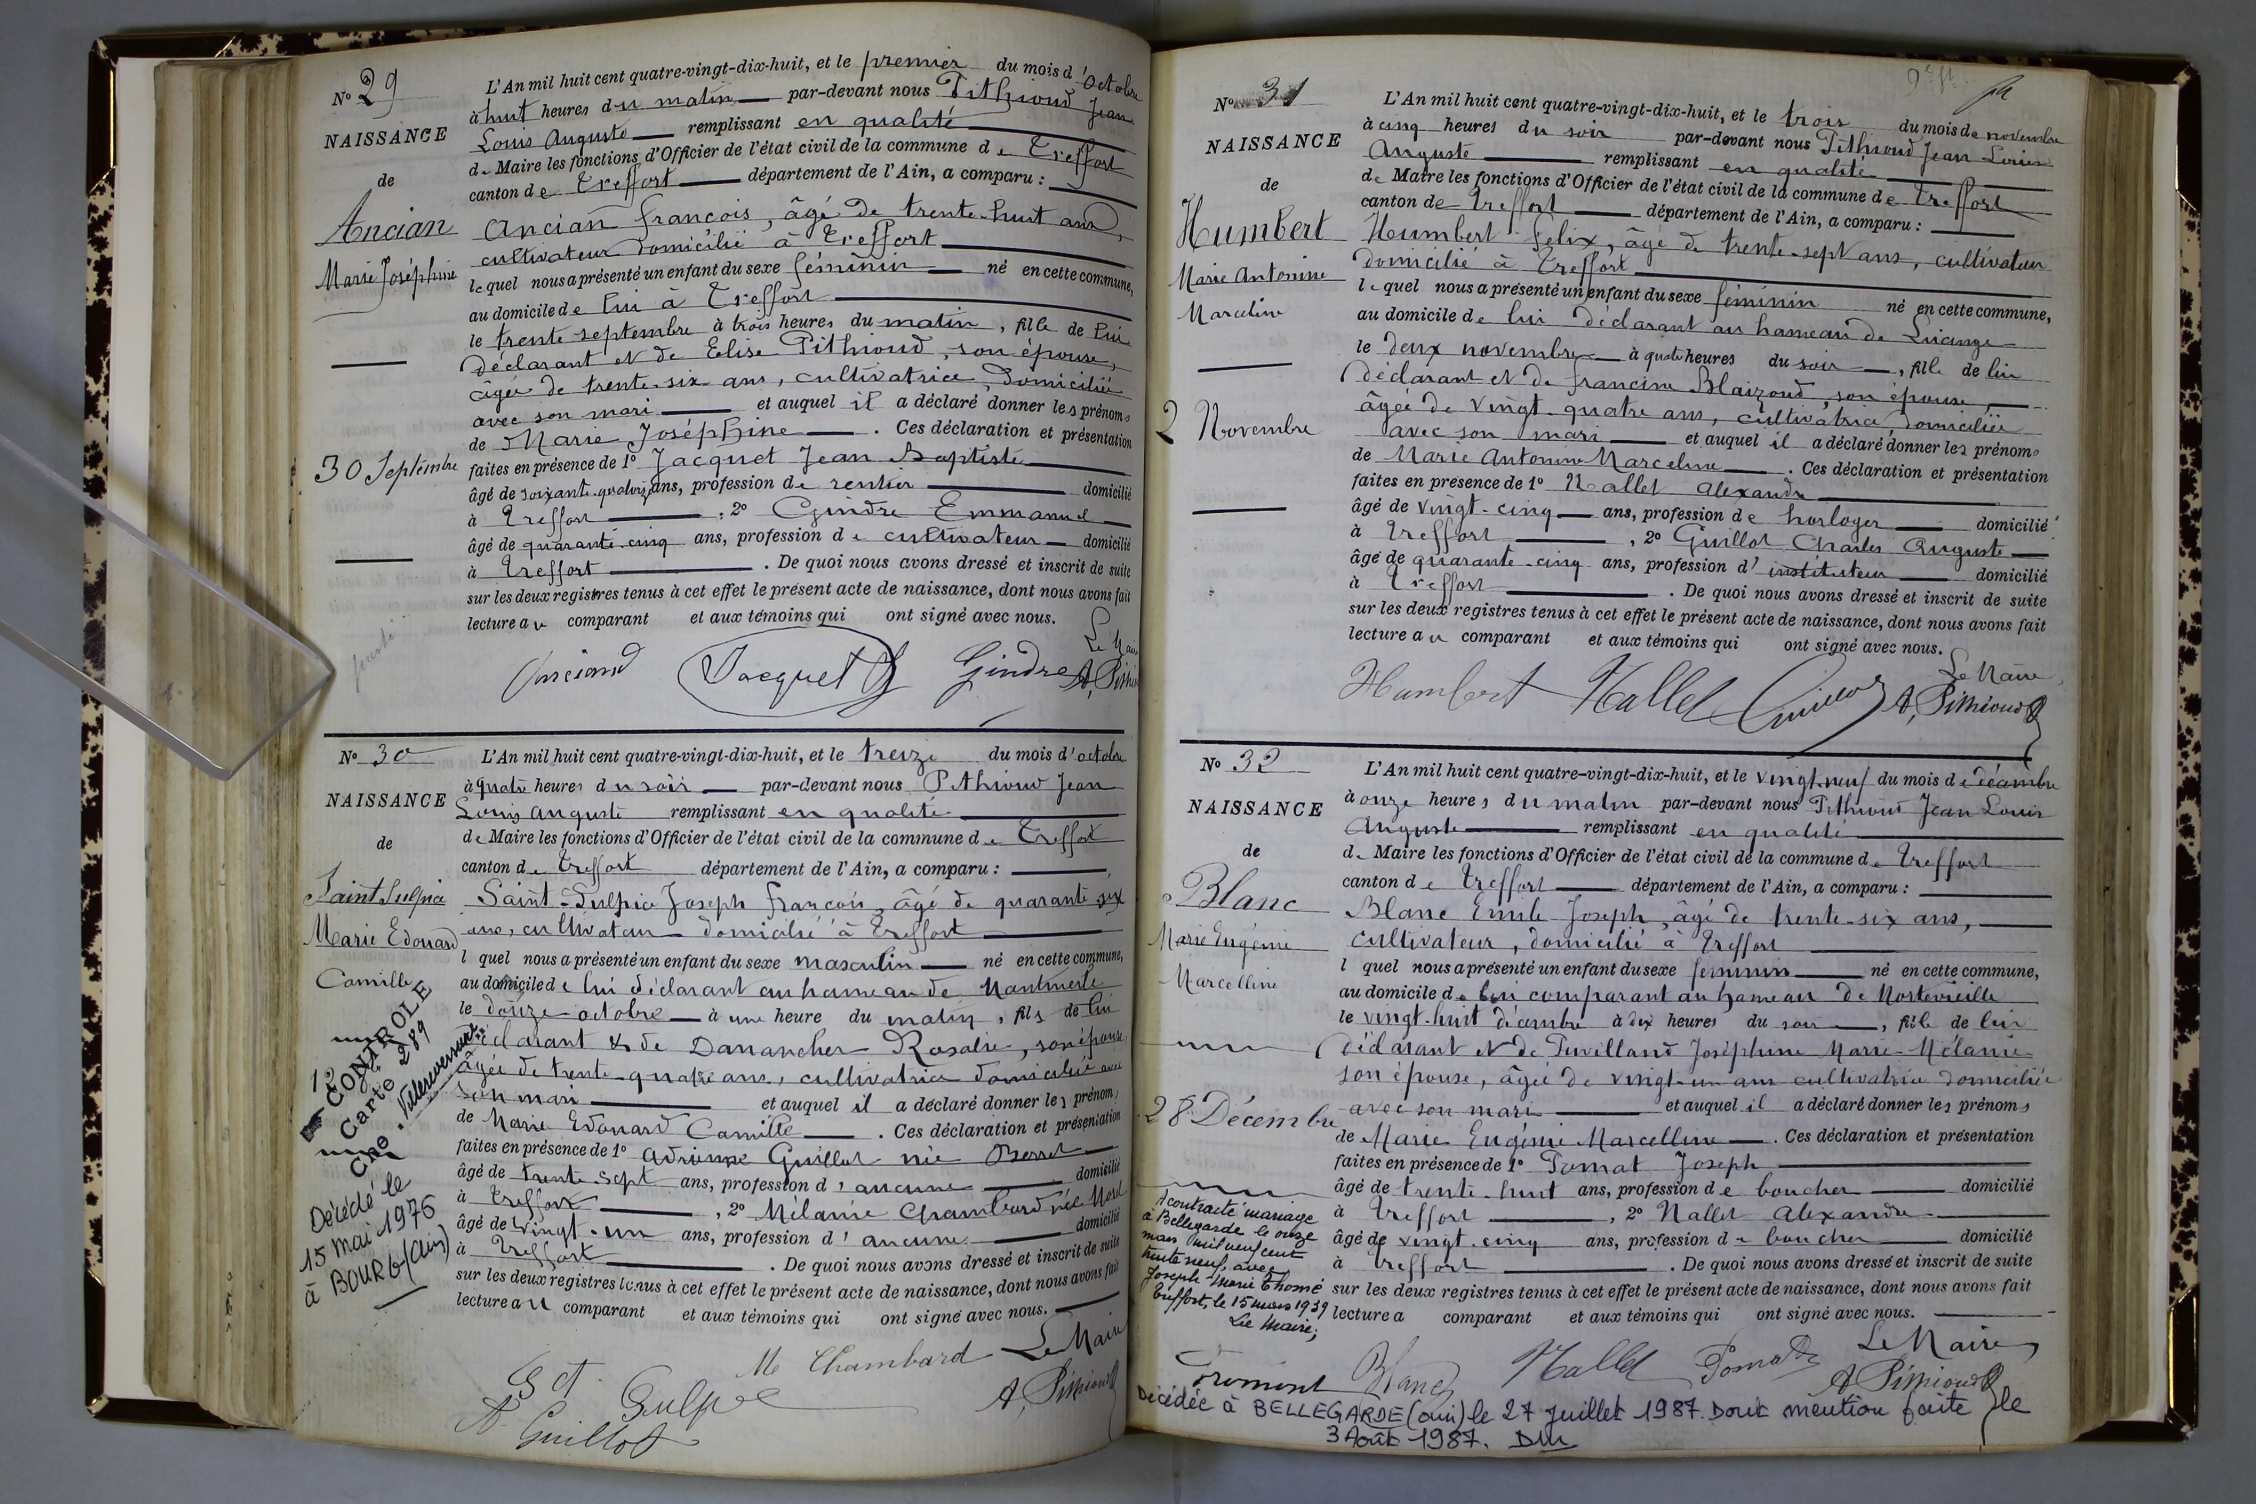 No 29
NAISSANCE
de
Ancian
Marie Joséphine
30 Septembre
L'An mil huit cent quatre-vingt-dix-huit, et le premier du mois d'octobre
à huit heures du matin par-devant nous Pithioud Jean
Louis Auguste remplissant en qualité
de Maire les fonctions d'Officier de l'état civil de la commune de Treffort
canton de Treffort département de l'Ain, a comparu :
Ancian françois, âgé de trente-huit ans,
cultivateur domicilié à Treffort
lequel nous a présenté un enfant du sexe féminin né en cette commune,
au domicile de lui à Treffort
le trente septembre à trois heures du matin, fille de lui
déclarant et de Elise Pithioud, son épouse,
âgée de trente-six ans, cultivatrice, domiciliée
avec son mari et auquel il a déclaré donner les prénoms
de Marie Joséphine. Ces déclaration et présentation
faites en présence de 1° Jacquet Jean Baptiste
âgé de soixante-quatorze ans, profession de rentier domicilié
à Treffort, 2° Gindre Emmanuel
âgé de quarante-cinq ans, profession de cultivateur domicilié
à Treffort. De quoi nous avons dressé et inscrit de suite
sur les deux registres tenus à cet effet le présent acte de naissance, dont nous avons fait
lecture au comparant et aux témoins qui ont signé avec nous.
Le Maire
Anciand Jacquet Gindre A. Pithioud
No 30
NAISSANCE
de
Saint Sulpice
Marie Edouard
Camille
12 8bre
CONTROLE
Carte 289
Cne. Villereversure
Décédé le
15 mai 1976
à BOURG (Ain)
L'An mil huit cent quatre-vingt-dix-huit, et le treize du mois d'octobre
à quatre heures du soir par-devant nous Pithioud Jean
Louis Auguste remplissant en qualité
de Maire les fonctions d'Officier de l'état civil de la commune de Treffort
canton de Treffort département de l'Ain, a comparu :
Saint-Sulpice Joseph françois, âgé de quarante six
ans, cultivateur domicilié à Treffort
l quel nous a présenté un enfant du sexe masculin né en cette commune,
au domicile de lui déclarant au hameau de Montmerle
le douze octobre à une heure du matin, fils de lui
déclarant & de Danancher Rosalie, son épouse
âgée de trente-quatre ans, cultivatrice domiciliée avec
son mari et auquel il a déclaré donner les prénoms
de Marie Edouard Camille. Ces déclaration et présentation
faites en présence de 1° Adrienne Guillot née Berret
âgé de trente-sept ans, profession d'aucune domicilié
à Treffort, 2° Mélanie Chambard née Morel
âgé de vingt-un ans, profession d'aucune domicilié
à Treffort. De quoi nous avons dressé et inscrit de suite
sur les deux registres tenus à cet effet le présent acte de naissance, dont nous avons fait
lecture au comparant et aux témoins qui ont signé avec nous.
Me Chambard Le Maire
St Sulpice A. Pithioud
A Guillot
No 31
NAISSANCE
de
Humbert
Marie Antonine
Marceline
2 Novembre
L'An mil huit cent quatre-vingt-dix-huit, et le trois du mois de novembre
à cinq heures du soir par-devant nous Pithioud Jean Louis
Auguste remplissant en qualité
de Maire les fonctions d'Officier de l'état civil de la commune de Treffort
canton de Treffort département de l'Ain, a comparu :
Humbert Felix, âgé de trente-sept ans, cultivateur
domicilié à Treffort
lequel nous a présenté un enfant du sexe féminin né en cette commune,
au domicile de lui déclarant au hameau de Lucinge
le deux novembre à quatre heures du soir, fille de lui
déclarant et de francine Blaizoud, son épouse,
âgée de vingt-quatre ans, cultivatrice, domiciliée
avec son mari et auquel il a déclaré donner les prénoms
de Marie Antonine Marceline. Ces déclaration et présentation
faites en présence de 1° Nallet Alexandre
âgé de vingt-cinq ans, profession de horloger domicilié
à Treffort, 2° Guillot Charles Auguste
âgé de quarante-cinq ans, profession d'instituteur domicilié
à Treffort. De quoi nous avons dressé et inscrit de suite
sur les deux registres tenus à cet effet le présent acte de naissance, dont nous avons fait
lecture au comparant et aux témoins qui ont signé avec nous.
Le Maire
Humbert Nallet Guillot A. Pithioud
No 32
NAISSANCE
de
Blanc
Marie Eugénie
Marcelline
28 Décembre
A contracté mariage
à Bellegarde le onze
mars mil neuf cent
trente neuf, avec
Joseph Marie Thomé
Treffort, le 15 mars 1939
Le Maire,
L'An mil huit cent quatre-vingt-dix-huit, et le vingt-neuf du mois de décembre
à onze heures du matin par-devant nous Pithioud Jean Louis
Auguste remplissant en qualité
de Maire les fonctions d'Officier de l'état civil de la commune de Treffort
canton de Treffort département de l'Ain, a comparu :
Blanc Emile Joseph, âgé de trente-six ans,
cultivateur, domicilié à Treffort
l quel nous a présenté un enfant du sexe féminin né en cette commune,
au domicile de lui comparant au hameau de Mortevieille
le vingt-huit décembre à dix heures du soir, fille de lui
déclarant et de Puvilland Joséphine Marie-Mélanie
son épouse, âgée de vingt-un ans cultivatrice domiciliée
avec son mari et auquel il a déclaré donner les prénoms
de Marie Eugénie Marcelline. Ces déclaration et présentation
faites en présence de 1° Pomat Joseph
âgé de trente-huit ans, profession de boucher domicilié
à Treffort, 2° Nallet Alexandre
âgé de vingt-cinq ans, profession de boucher domicilié
à Treffort. De quoi nous avons dressé et inscrit de suite
sur les deux registres tenus à cet effet le présent acte de naissance, dont nous avons fait
lecture a comparant et aux témoins qui ont signé avec nous.
Le Maire
Fromont Blanc Nallet Pomat A. Pithioud
Décédée à BELLEGARDE (ain) le 27 Juillet 1987. Dont mention faite le
3 Août 1987.